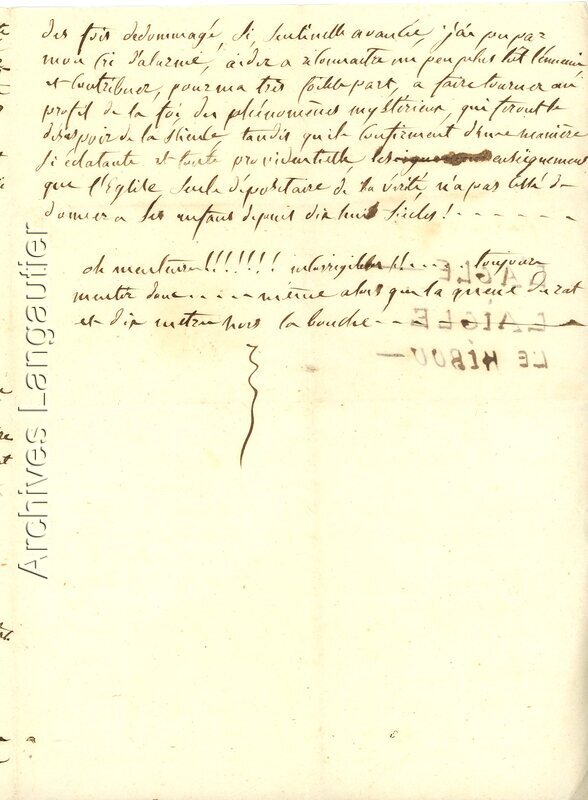 des fois dedommagé, si, sentinelle avancée, j'ai pu par
mon cri d'alarme, aider a reconnaitre un peu plus tôt l'ennemi
et contribuer, pour ma très foible part, a faire tourner au
profit de la foi, des phénomènes mystérieux, qui feront le
desespoir de la science tandis qu'ils confirment d'une manière
si éclatante et toute providentielle, les enseignement
que l'Eglise, seule dépositaire de la vérité, n'a pas cessé de
donner a ses enfans depuis dix huit siècles! - - - - - -
oh menteurs!!!!!!! incorrigibles!! . . . . toujours
mentir donc - - - - même alors que la queue du rat
est dix metres hors la bouche - - -
L'AIGLE
L'AIGLE
LE HIBOU —
Archives Langautier